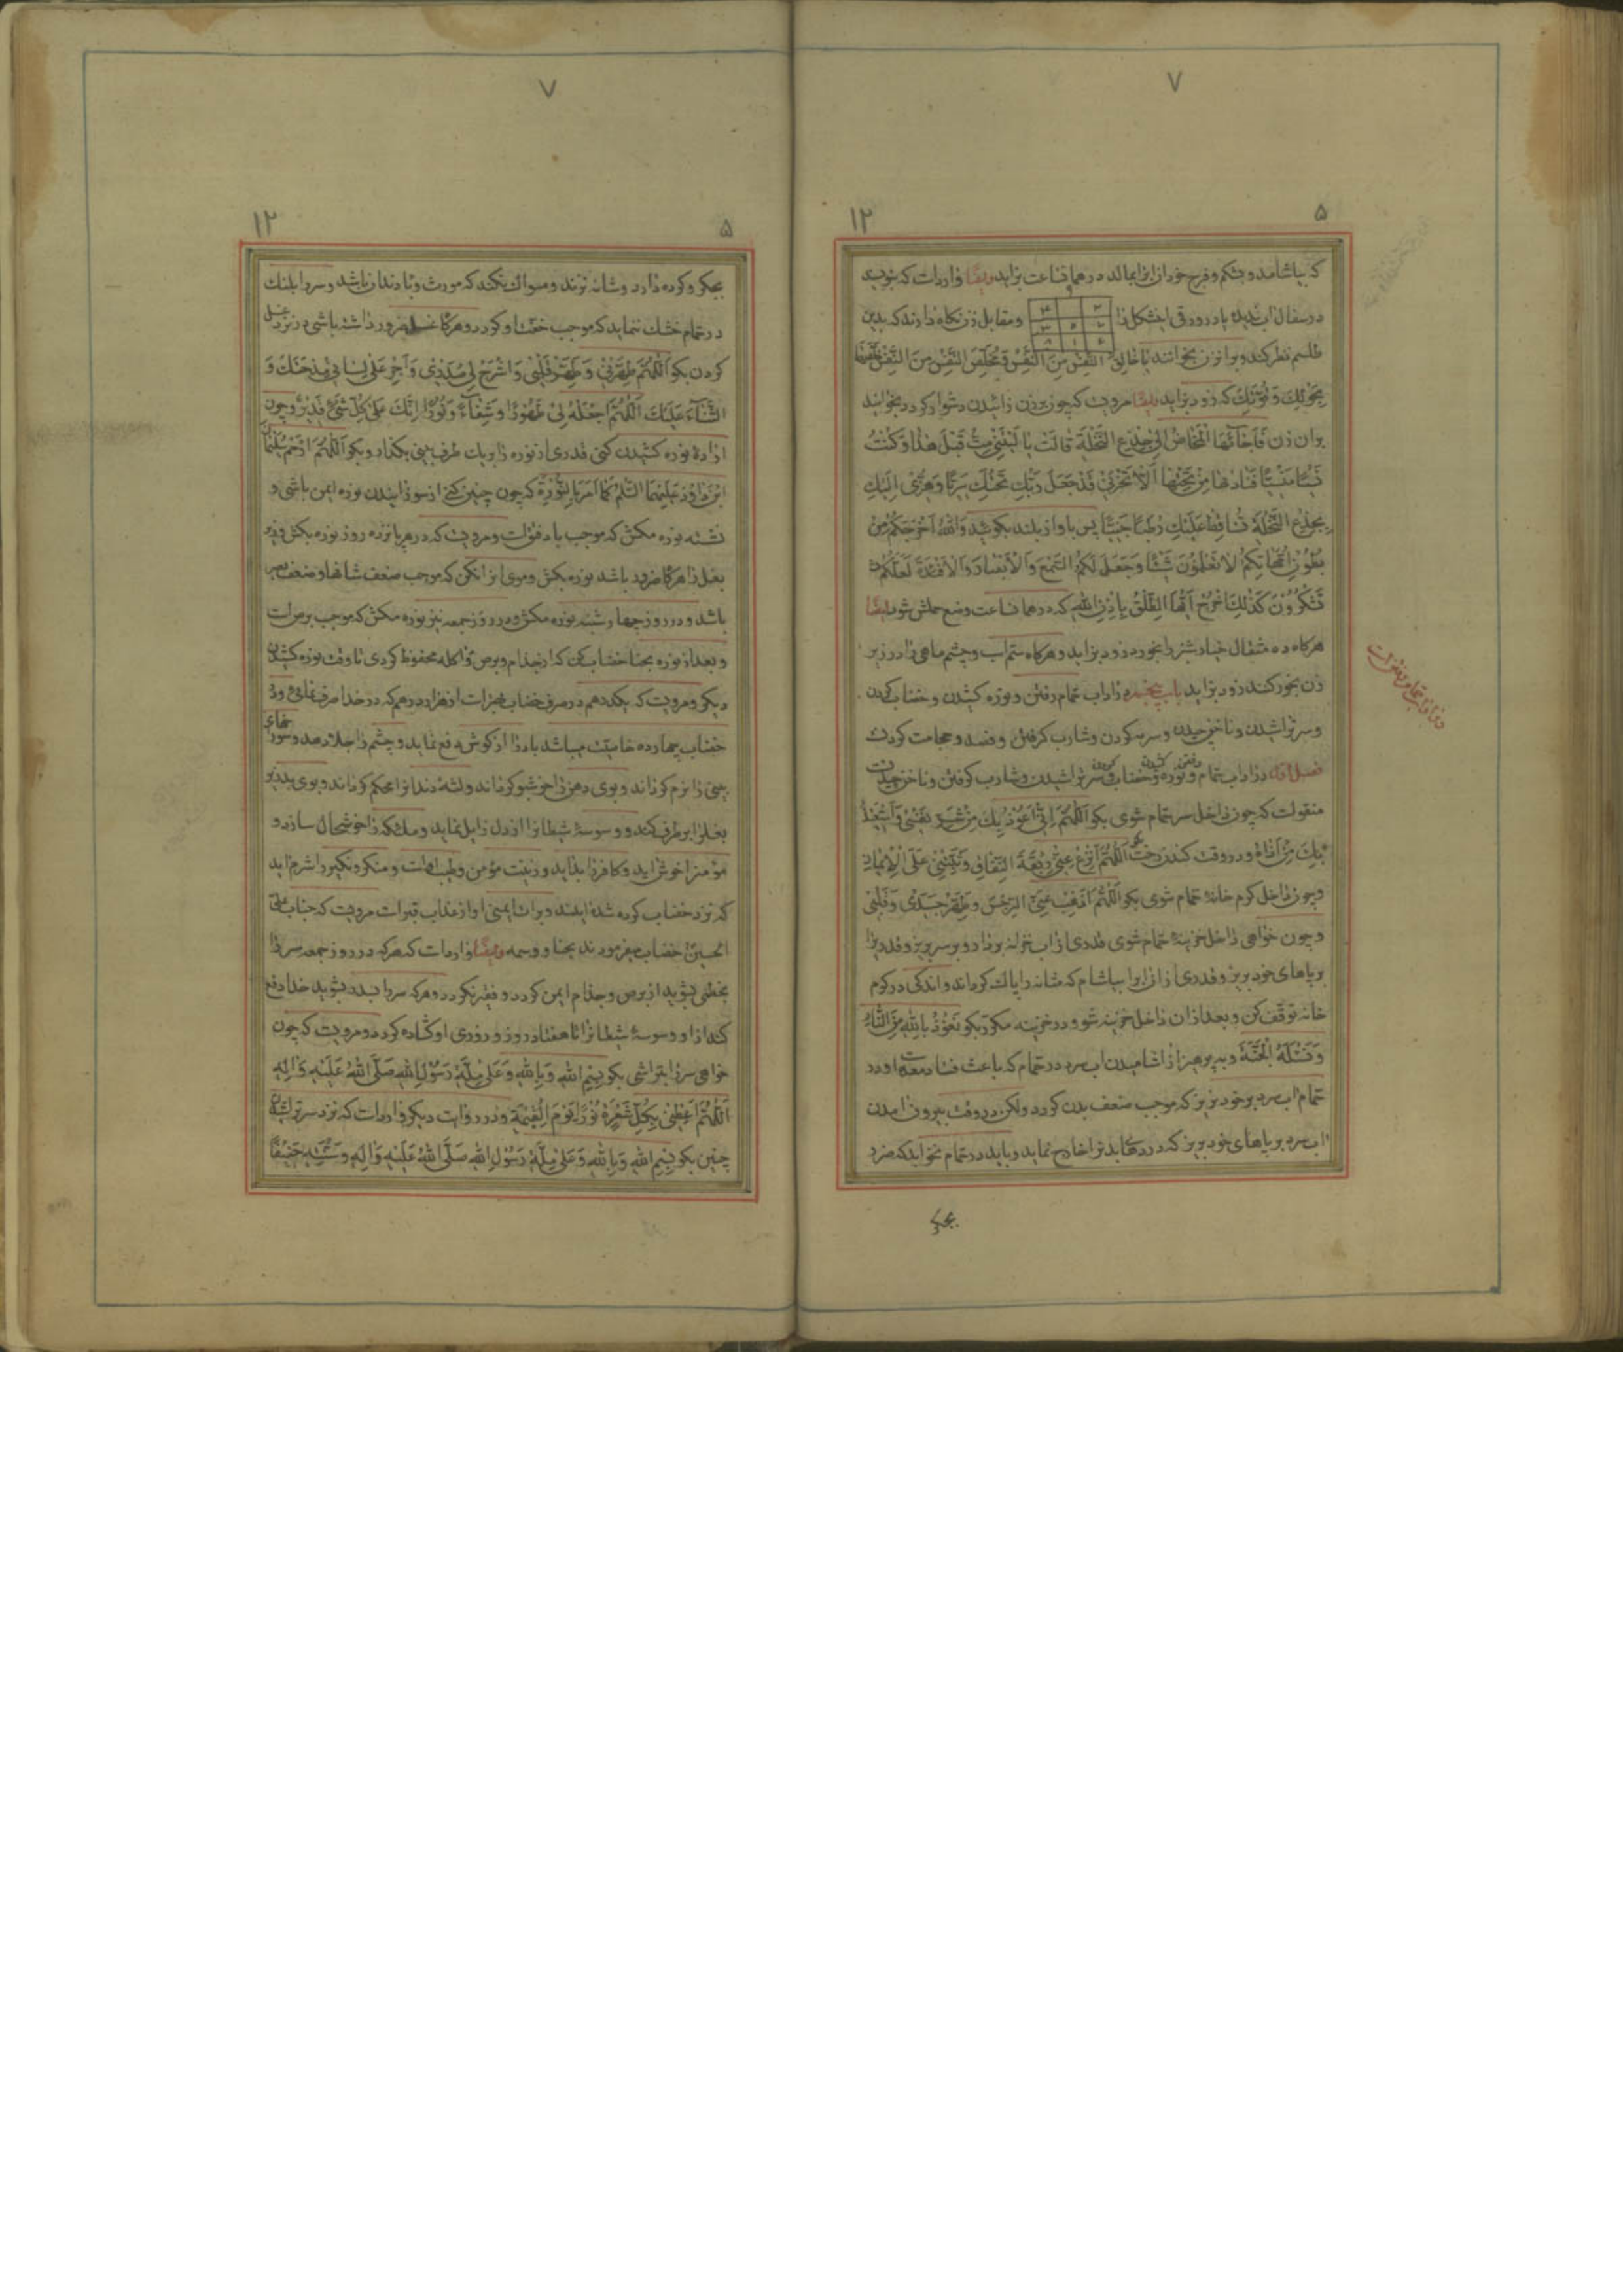 ۷
۵
۱۲
که بیاشامد و بشکم و فرج خود ازان بمالد در همان ساعت بزاید وایضا وارداست که بنویسد
در سفال اب ندیده یا در ورقی این شکل را و مقابل زن نکاه دارند که بدین
طلسم نظر کند و بران زن بخوانند یا خالق النفس من النفس و مخلص النفس من النفس خلصها
بحولك وقوتك که زود بزاید ایضا مرویست که چون بر زن زائیدن دشوار کردد بخوانند
بران زن فَاَجَاءَهَا الْمَخَاضُ اِلَى جِذْعِ النَّخْلَةِ قَالَتْ يَا لَيْتَنِي مِتُّ قَبْلَ هٰذَا وَكُنْتُ
نَسْيًا مَنْسِيًّا فَنَادٰهَا مِنْ تَحْتِهَا اَلَّا تَحْزَنِي قَدْ جَعَلَ رَبُّكِ تَحْتَكِ سَرِيًّا وَهُزِّي اِلَيْكِ
بِجِذْعِ النَّخْلَةِ تُسَاقِطْ عَلَيْكِ رُطَبًا جَنِيًّا پس باواز بلند بکوئید وَاللّٰهُ اَخْرَجَكُمْ مِنْ
بُطُونِ اُمَّهَاتِكُمْ لَا تَعْلَمُونَ شَيْئًا وَجَعَلَ لَكُمُ السَّمْعَ وَالْاَبْصَارَ وَالْاَفْئِدَةَ لَعَلَّكُمْ
تَشْكُرُونَ كَذٰلِكَ اُخْرُجْ اَيُّهَا الطَّلْقُ بِاِذْنِ اللّٰهِ که در همان ساعت وضع حملش شود ایضا
هرکاه ده مثقال خیار شنبر را بخورد زود بزاید و هرکاه سم اسب و چشم ماهی را در زیر
زن بخور کنند زود بزاید باب پنجم در اداب حمام رفتن و نوره کشیدن و خضاب کردن
و سر تراشیدن و ناخن چیدن و سرمه کردن و شارب کرفتن و فصد و حجامت کردن
رفتن کشیدن کردن
فصل اول در اداب حمام و نوره و خضاب و سر تراشیدن و شارب کرفتن و ناخن چیدن
منقولست که چون داخل سر حمام شوی بکو اَللّٰهُمَّ اِنِّي اَعُوذُ بِكَ مِنْ شَرِّ نَفْسِي وَاَسْتَعِيذُ
بِكَ مِنْ اَذَاهُ و در وقت کندن رخت اَللّٰهُمَّ انْزِعْ عَنِّي رِبْقَةَ النِّفَاقِ وَثَبِّتْنِي عَلَى الْاِيمَانِ
و چون داخل کرم خانهٔ حمام شوی بکو اَللّٰهُمَّ اَذْهِبْ عَنِّي الرِّجْسَ وَطَهِّرْ جَسَدِي وَقَلْبِي
و چون خواهی داخل خزینهٔ حمام شوی قدری از اب خزینه بردار و بر سر بریز و قدری را
بر پاهای خود بریز و قدری از ان اب را بیاشام که مثانه را پاک کرداند و اندکی در کرم
خانه توقف کن و بعد ازان داخل خزینه شو و در خزینه مکرر بکو نَعُوذُ بِاللّٰهِ مِنَ النَّارِ
وَنَسْئَلُهُ الْجَنَّةَ و بپرهیز از اشامیدن اب سرد در حمام که باعث فساد معده است و در
حمام اب سرد بر خود نریز که موجب ضعف بدن کردد ولکن در وقت بیرون امدن
اب سرد بر پاهای خود بریز که درد را از بدن خارج نماید و باید در حمام نخوابد که ضرر
بجکر
۷
۵
۱۲
بجکر و کرده دارد و شانه نزند و مسواک نکند که مورث وبا دندان باشد و سر را بلنک
در حمام خشک ننماید که موجب خفت او کردد و هرکاه غسل ضرور داشته باشی در نزد غسل
کردن بکو اَللّٰهُمَّ طَهِّرْنِي وَطَهِّرْ قَلْبِي وَاشْرَحْ لِي صَدْرِي وَاَجْرِ عَلَى لِسَانِي مِدْحَتَكَ وَ
الثَّنَاءَ عَلَيْكَ اَللّٰهُمَّ اجْعَلْهُ لِي طَهُورًا وَشِفَاءً وَنُورًا اِنَّكَ عَلَى كُلِّ شَيْءٍ قَدِيرٌ و چون
ارادهٔ نوره کشیدن کنی قدری از نوره را بر یک طرف بینی بکذار و بکو اَللّٰهُمَّ ارْحَمْ سُلَيْمَانَ
ابْنَ دَاوُدَ عَلَيْهِمَا السَّلَمُ كَمَا اَمَرَنَا بِالنُّورَةِ که چون چنین کنی از سوزانیدن نوره ایمن باشی و
نشسته نوره مکش که موجب باد فتق است و مرویست که در هر پانزده روز نوره بکش و زیر
بغل را هرکاه ضرور باشد نوره بکش و موی انرا نکن که موجب ضعف شانها و ضعف بصر
باشد و در روز چهار شنبه نوره مکش و در روز جمعه نیز نوره مکش که موجب برص است
و بعد از نوره بحنا خضاب کن که از جذام و برص و اکله محفوظ کردی تا وقت نوره کشیدن
دیکر و مرویست که یکدرهم در صرف خضاب بهتر است از هزار درهم که در خدا صرف نمائی و در
خضاب چهارده خاصیت میباشد باد را از کوش دفع نماید و چشم را جلا دهد و سوراخهای
بینی را نرم کرداند و بوی دهن را خوشبو کرداند و لثهٔ دندانرا محکم کرداند و بوی بد زیر
بغلرا برطرف کند و وسوسهٔ شیطانرا از دل زایل نماید و ملئکه را خوشحال سازد و
مؤمنرا خوش اید و کافر را بد اید و زینت مؤمن و طیب اوست و منکر و نکیر را شرم اید
که نزد خضاب کرده شده ایند و برات ایمنی او از عذاب قبر است مرویست که جناب علی بن
الحسین خضاب میفرمودند بحنا و وسمه وایضا وارداست که هرکه در روز جمعه سر را
بخطمی بشوید از برص و جذام ایمن کردد و فقیر نکردد و هرکه سر را بسدر بشوید خدا دفع
کند از او وسوسهٔ شیطانرا تا هفتاد روز و روزی او کشاده کردد و مرویست که چون
خواهی سر را بتراشی بکو بِسْمِ اللّٰهِ وَبِاللّٰهِ وَعَلَى مِلَّةِ رَسُولِ اللّٰهِ صَلَّى اللّٰهُ عَلَيْهِ وَاٰلِهِ
اَللّٰهُمَّ اَعْطِنِي بِكُلِّ شَعْرَةٍ نُورًا يَوْمَ الْقِيٰمَةِ و در روایت دیکر وارداست که نزد سر تراشیدن
چنین بکو بِسْمِ اللّٰهِ وَبِاللّٰهِ وَعَلَى مِلَّةِ رَسُولِ اللّٰهِ صَلَّى اللّٰهُ عَلَيْهِ وَاٰلِهِ وَسُنَّتِهِ حَنِيفًا